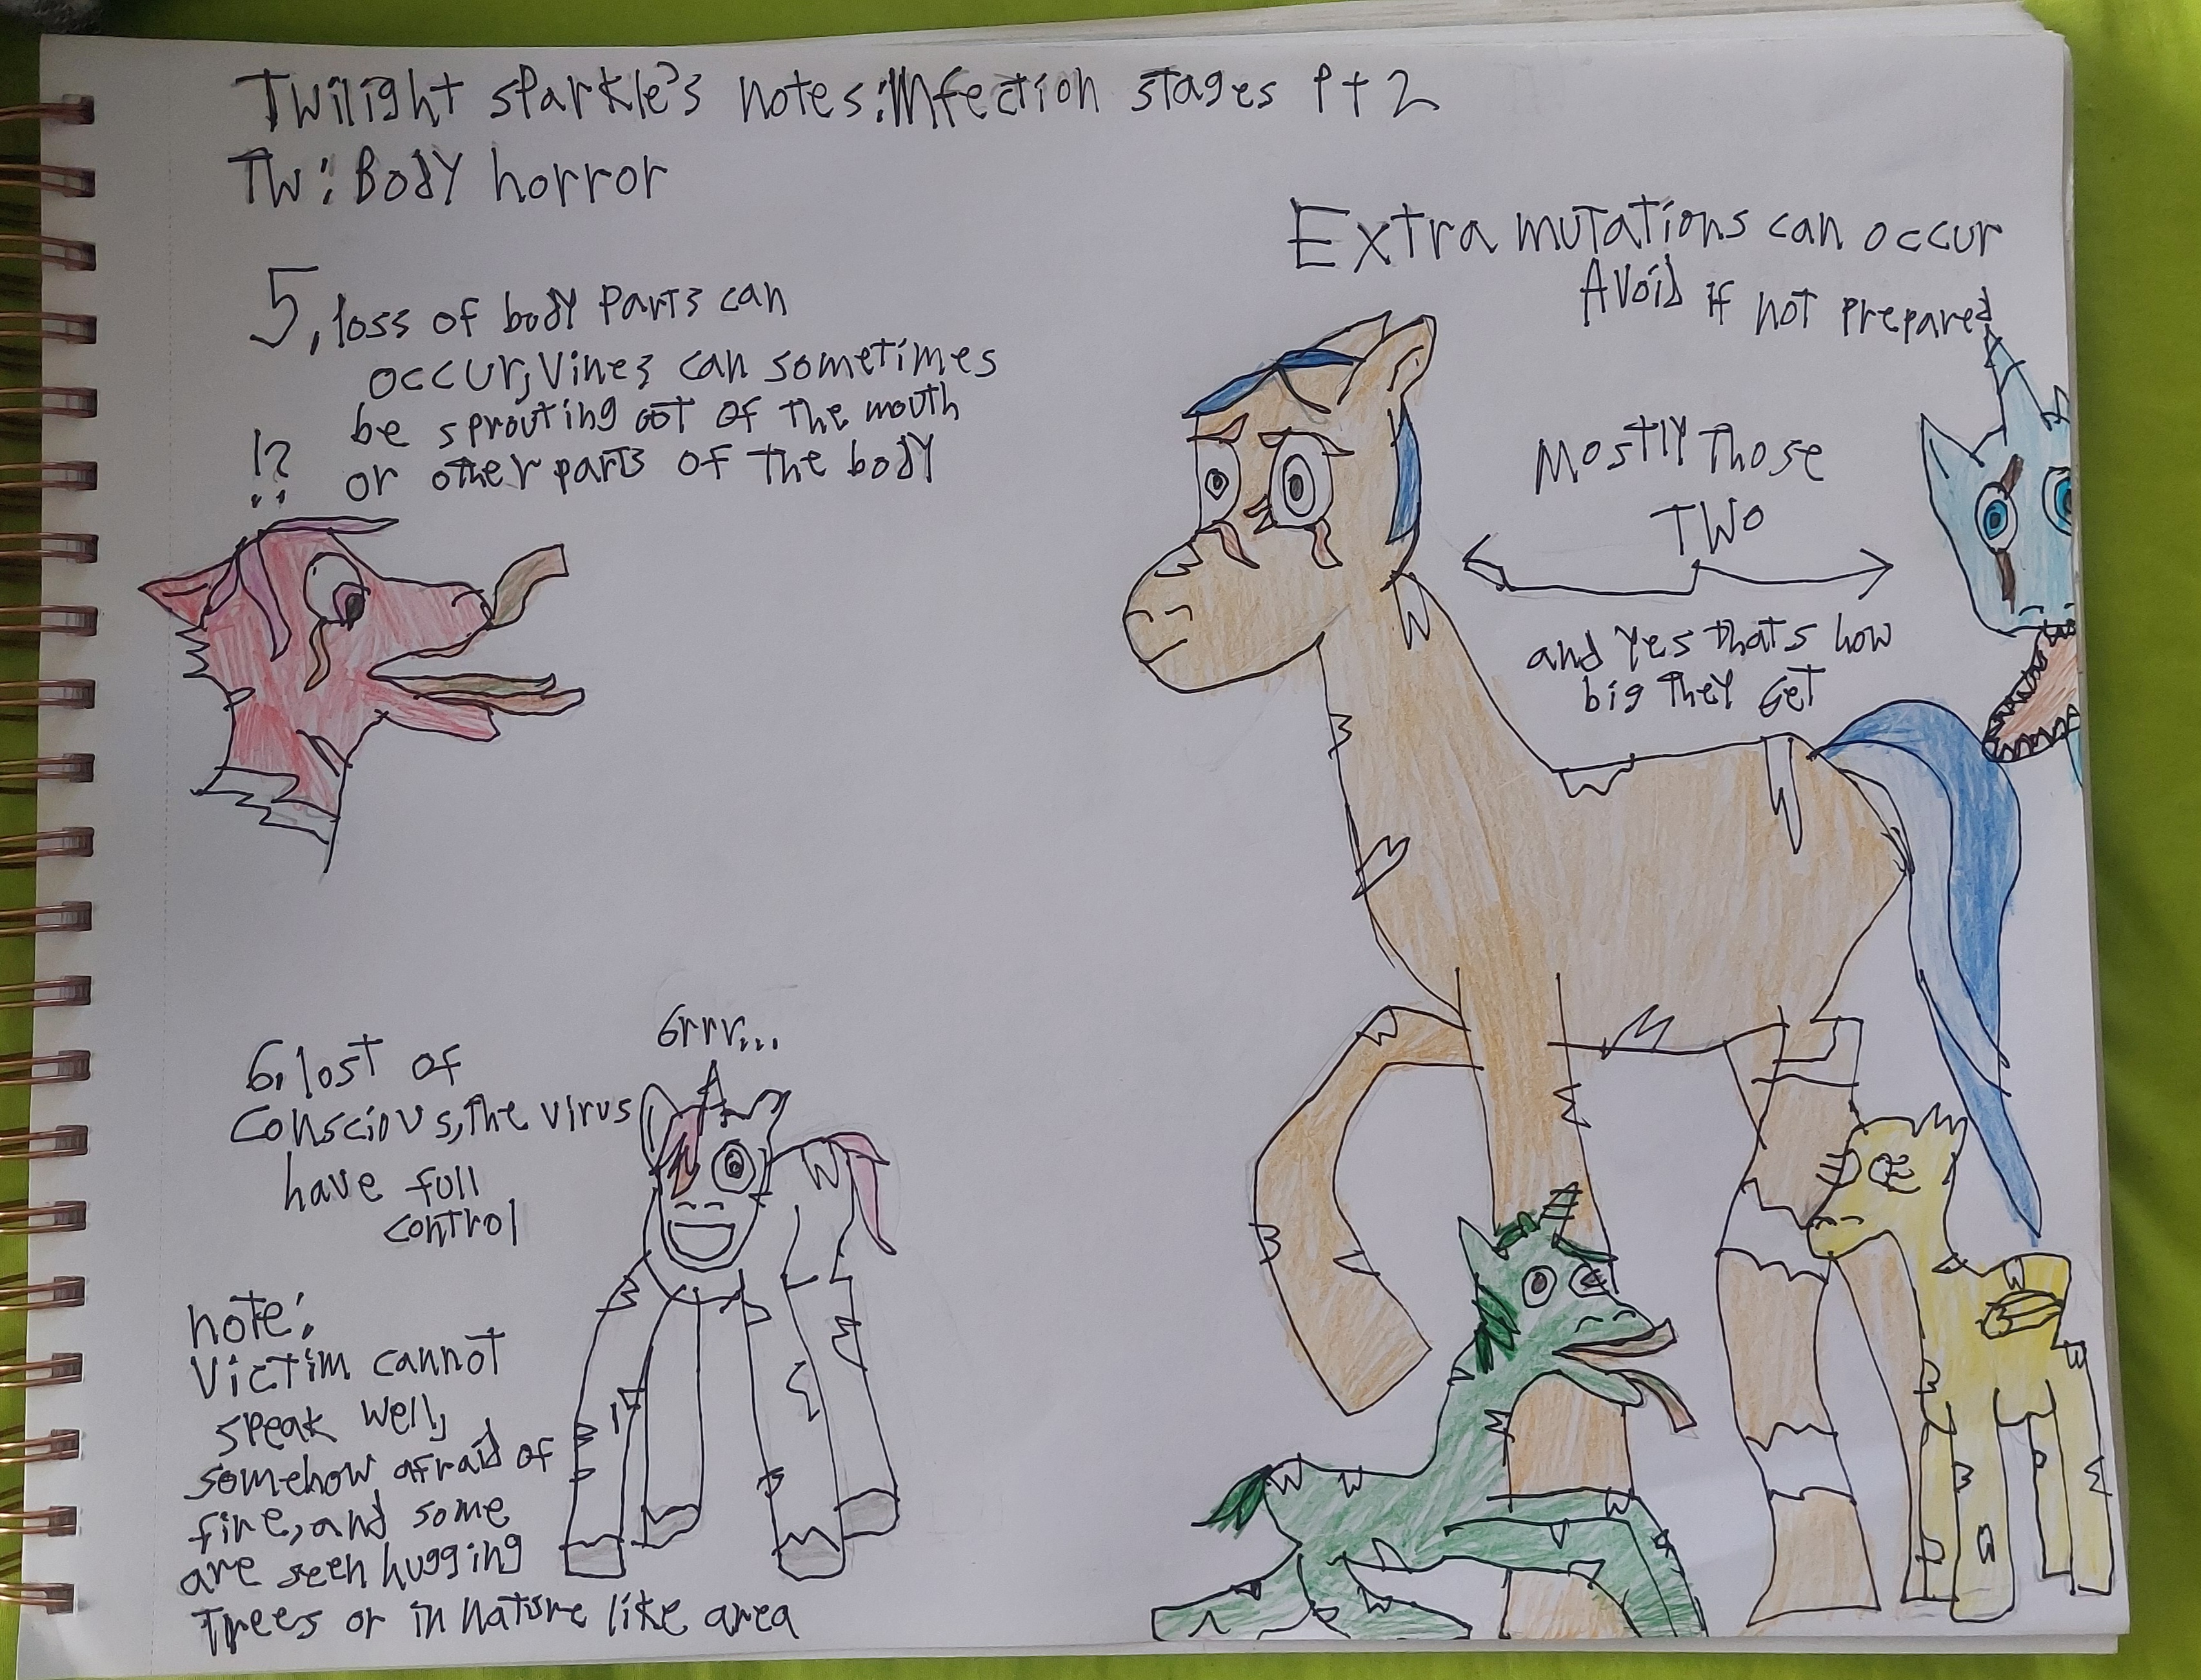 Twilight sparkle's notes:Infection stages Pt 2
TW: Body horror
5, loss of body parts can
occur, vines can sometimes
be sprouting oot of the mouth
or other parts of the body
!?
6, lost of
conscious, the virus
have full
control
Grrr...
note:
Victim cannot
speak well,
somehow afraid of
fire, and some
are seen hugging
trees or in nature like area
Extra mutations can occur
Avoid if not prepared
Mostly those
TWO
and yes thats how
big they get